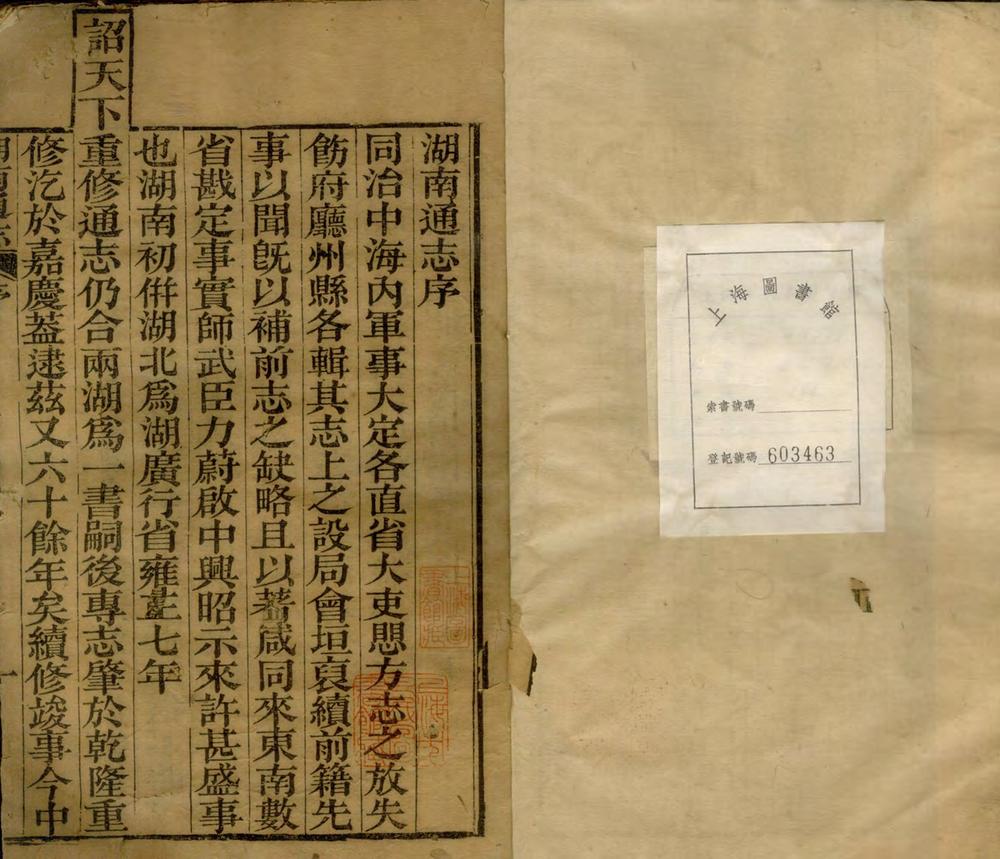 上海圖書館
索書號碼
登記號碼 603463
湖南通志序
同治中海內軍事大定各直省大吏思方志之放失
飭府廳州縣各輯其志上之設局會垣裒續前籍先
事以聞旣以補前志之缺略且以著咸同來東南數
省戡定事實師武臣力蔚啟中興昭示來許甚盛事
也湖南初併湖北爲湖廣行省雍正七年
詔天下重修通志仍合兩湖爲一書嗣後專志肇於乾隆重
修汔於嘉慶葢逮茲又六十餘年矣續修竣事今中